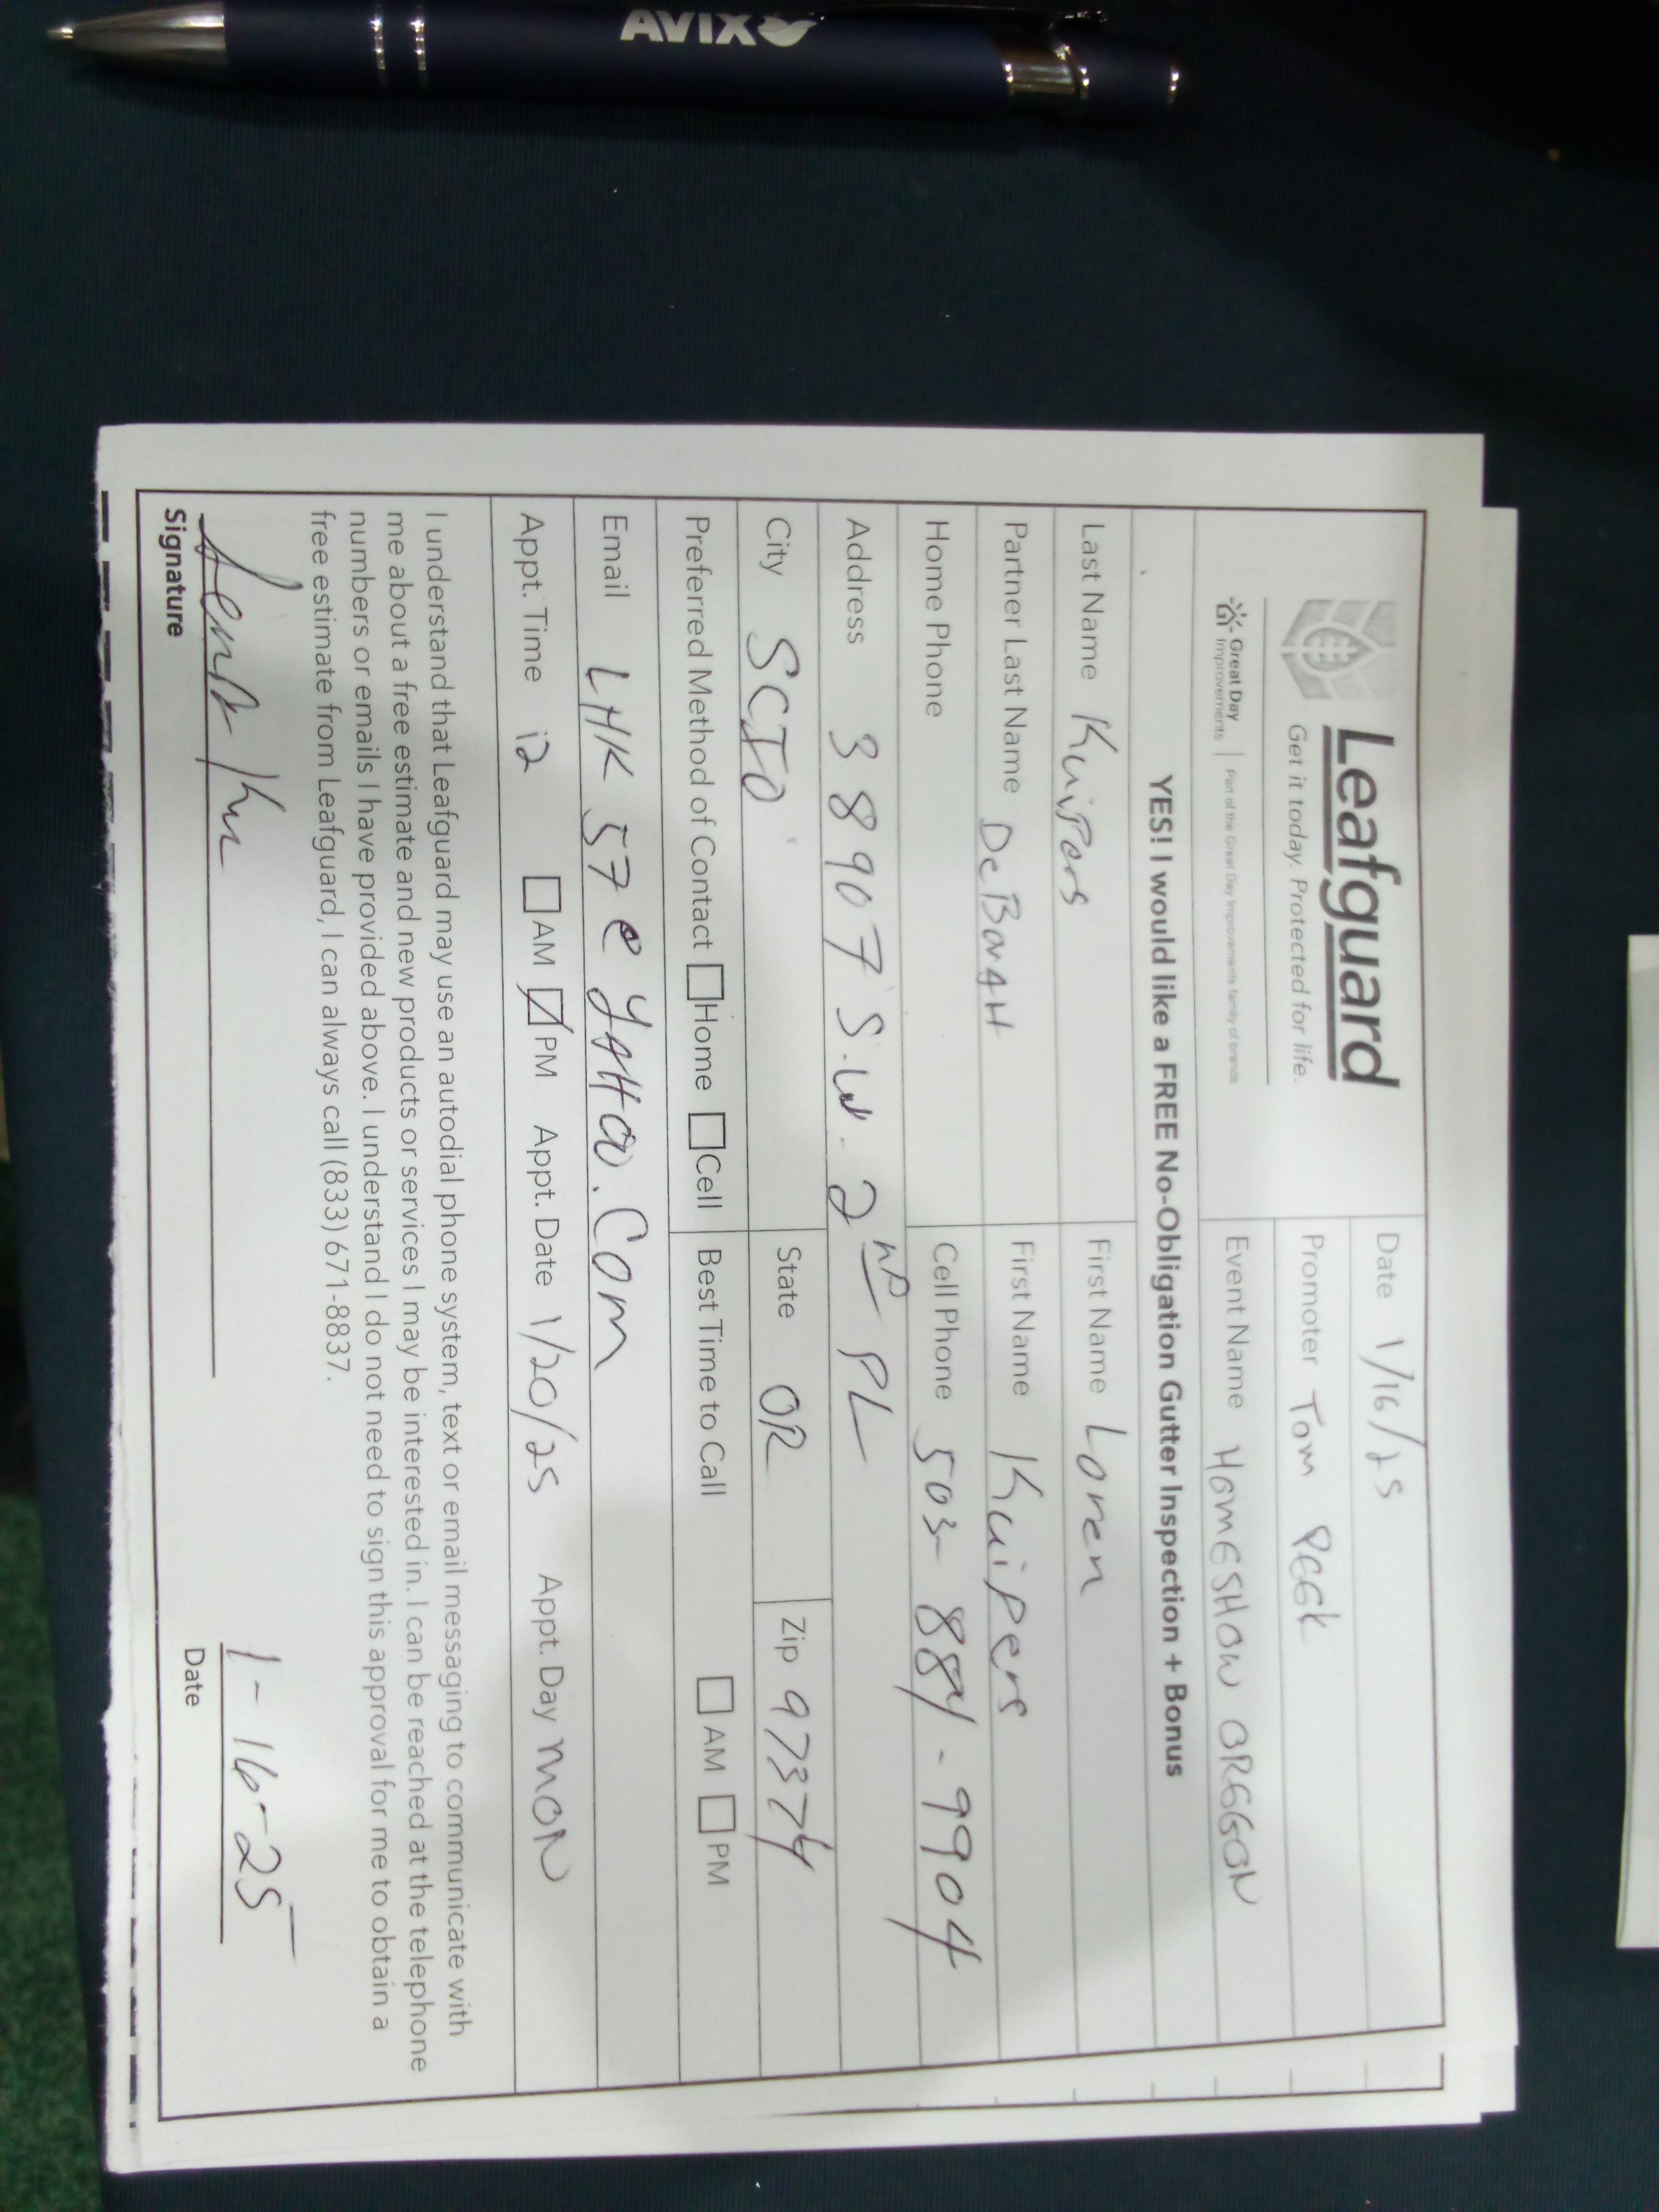 AVIX
Leafguard
Get it today. Protected for life.
Great Day Improvements | Part of the Great Day Improvements family of brands.
Date 1/16/25
Promoter Tom PEEk
Event Name HOMESHOW OREGON
YES! I would like a FREE No-Obligation Gutter Inspection + Bonus
Last Name Kuipers First Name Loren
Partner Last Name DeBorAH First Name Kuipers
Home Phone Cell Phone 503-884-9904
Address 38907 S.W. 2ND PL
City SCIO State OR Zip 97374
Preferred Method of Contact Home Cell Best Time to Call AM PM
Email LHK57@YAHOO.COM
Appt. Time 12 AM PM Appt. Date 1/20/25 Appt. Day MON
I understand that Leafguard may use an autodial phone system, text or email messaging to communicate with
me about a free estimate and new products or services I may be interested in. I can be reached at the telephone
numbers or emails I have provided above. I understand I do not need to sign this approval for me to obtain a
free estimate from Leafguard, I can always call (833) 671-8837.
1-16-25
Signature Date